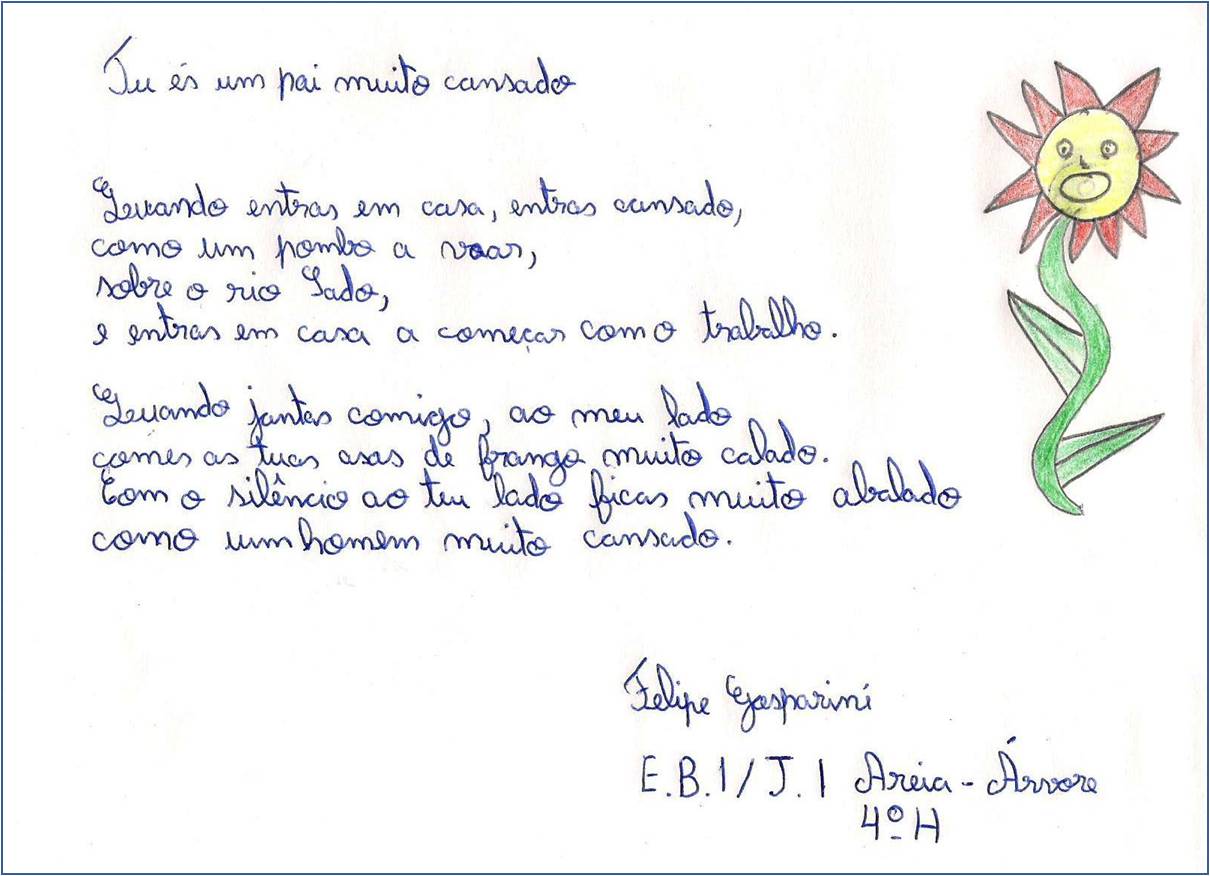 Tu és um pai muito cansado
Quando entras em casa, entras cansado,
como um pombo a voar,
sobre o rio Sado,
e entras em casa a começar como trabalho.
Quando jantas comigo, ao meu lado
comes as tuas asas de frango muito calado.
Com o silêncio ao teu lado ficas muito abalado
como um homem muito cansado.
Felipe Gasparini
E.B.1/J.I Areia - Árvore
4º H